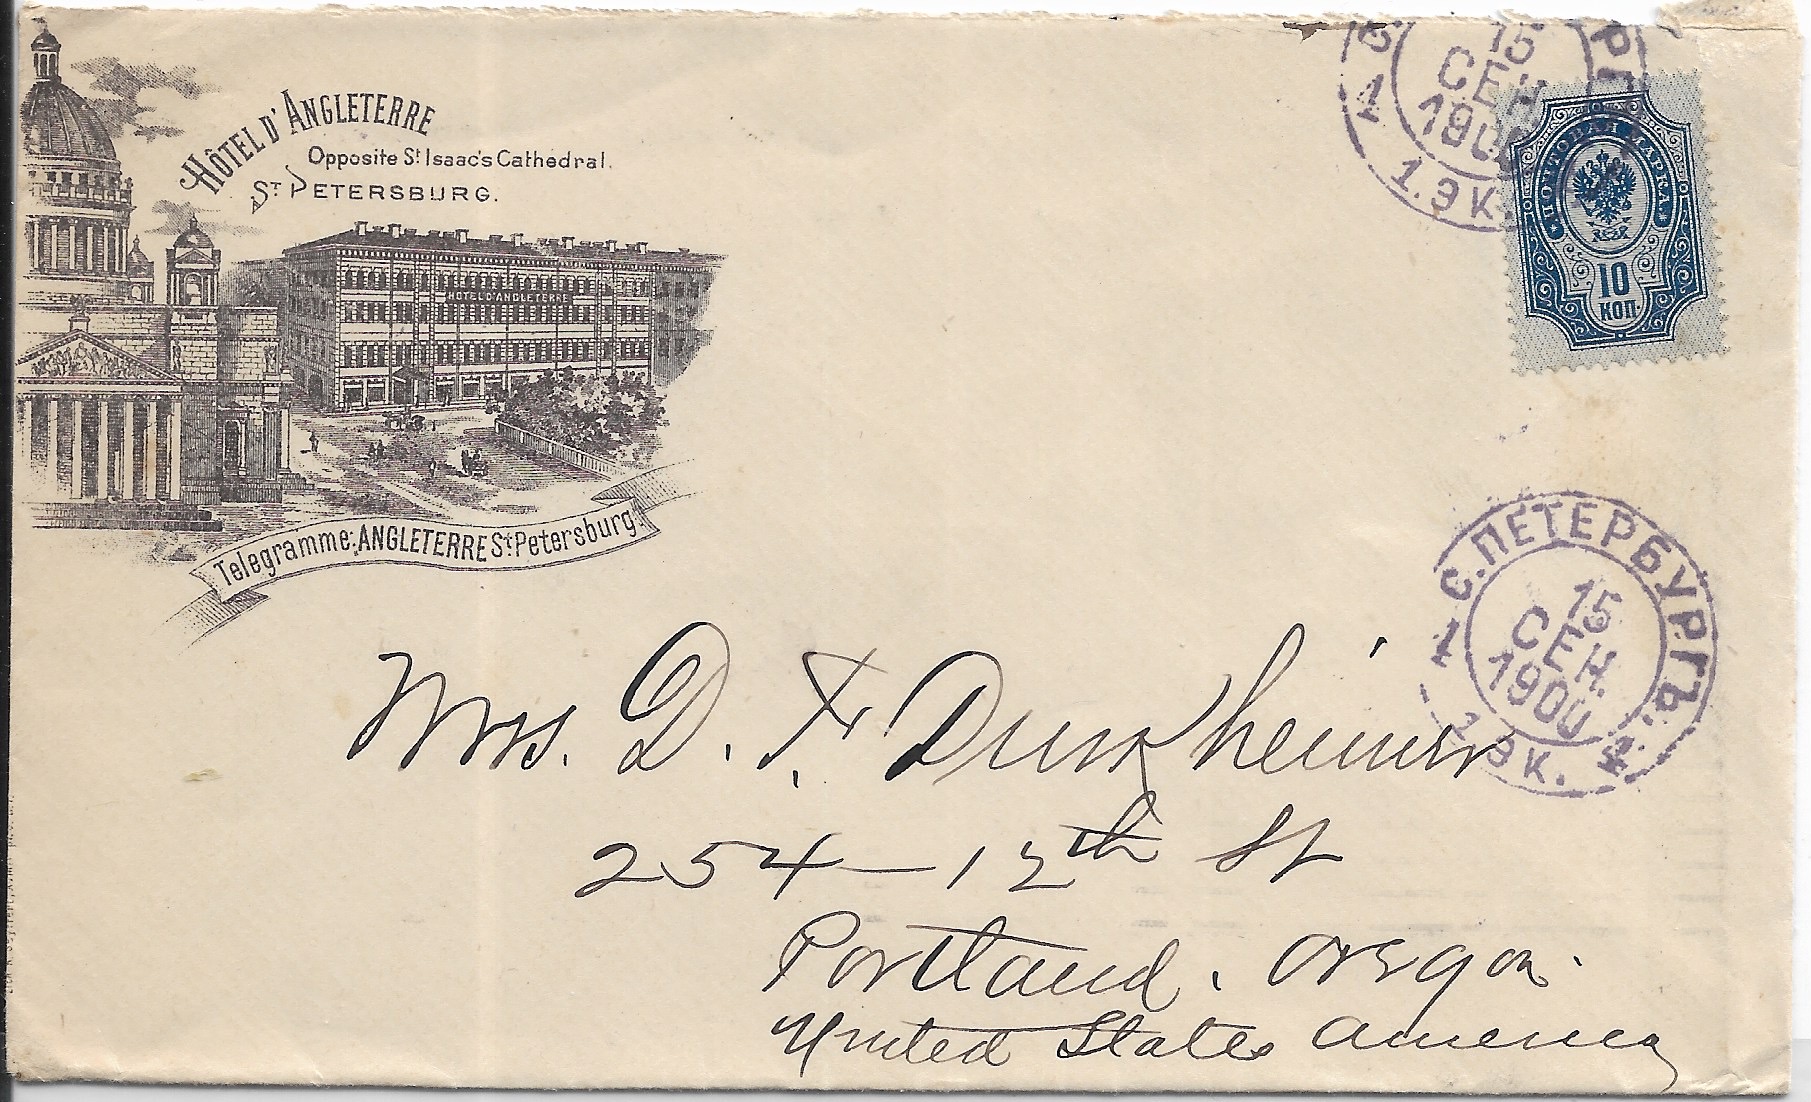 HÔTEL D'ANGLETERRE
Opposite St Isaac's Cathedral.
ST PETERSBURG.
HOTEL D'ANGLETERRE
Telegramme: ANGLETERRE St Petersburg.
15
СЕН
1900
1
1.ЭК.
ПОЧТОВАЯ МАРКА
10
КОП.
С.ПЕТЕРБУРГЪ
15
СЕН.
1900
1
1 ЭК.
Mrs. D. F. Durkheimer
254 — 12th St
Portland. Oregon.
United States America